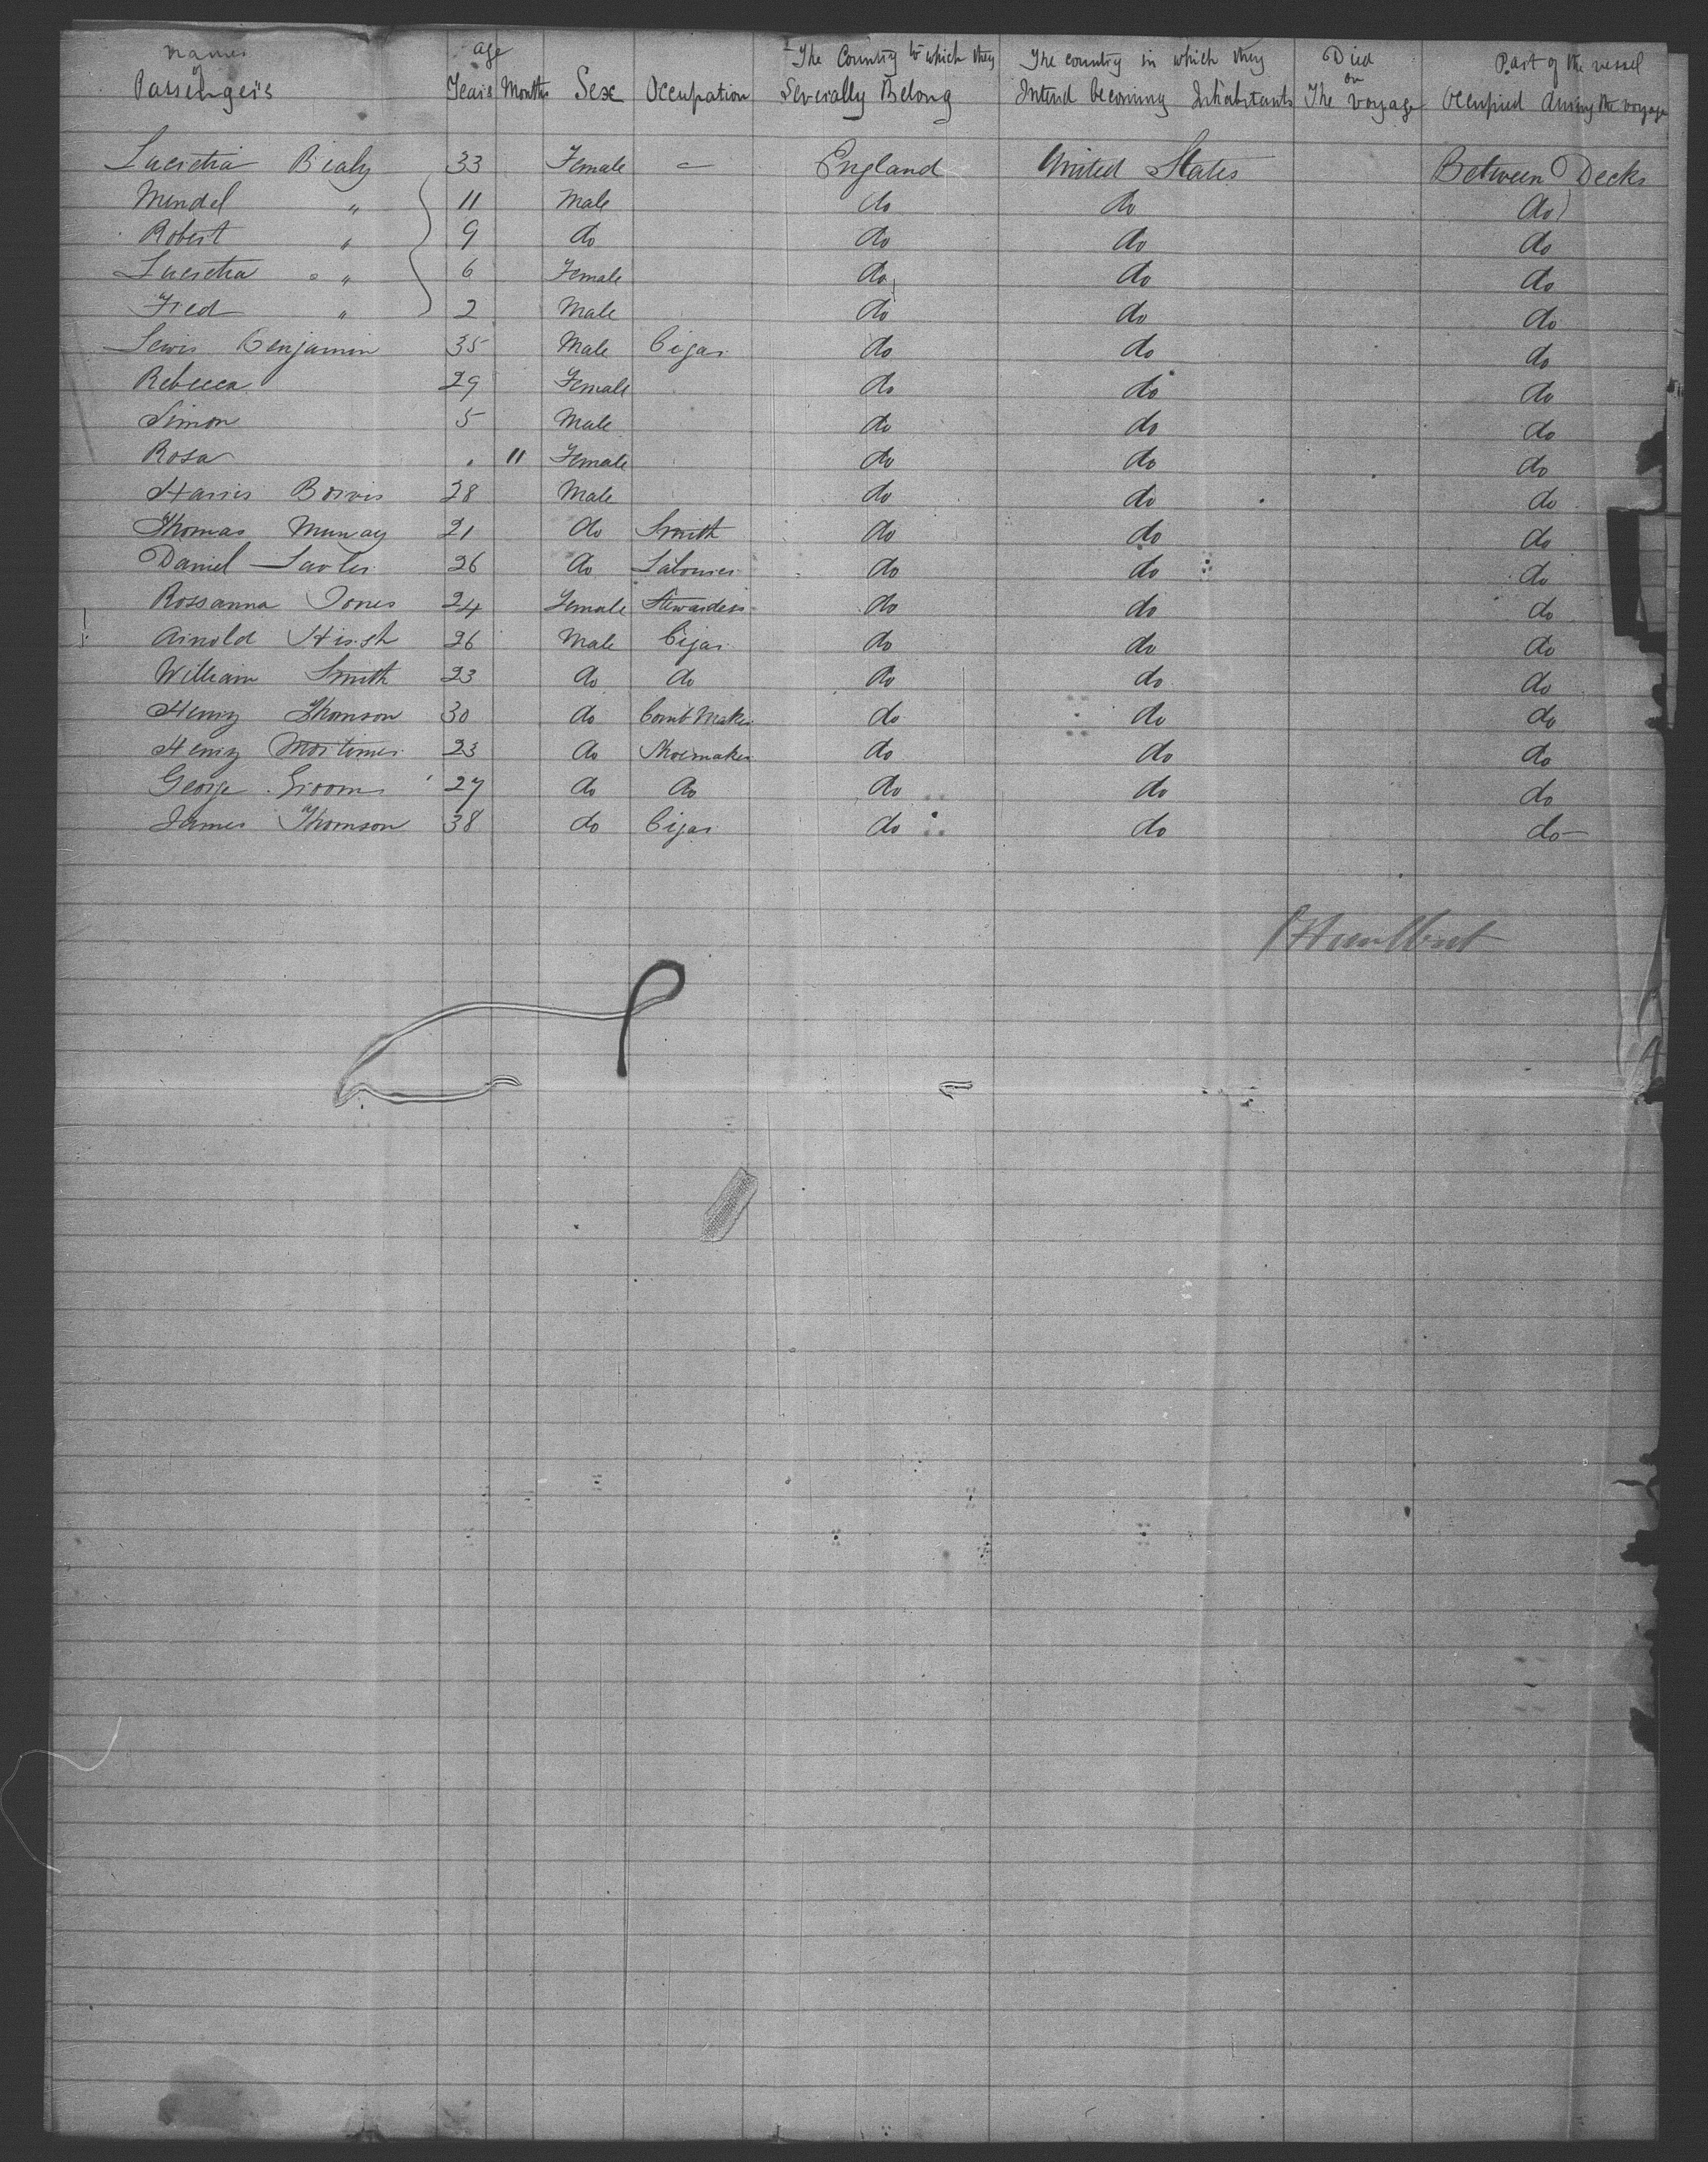 Names of Passengers | Age Years | Months | Sex | Occupation | The Country to which they Severally Belong | The country in which they Intend becoming Inhabitants | Died on The voyage | Part of the vessel Occupied during the voyage
Lucretia Bialy 33 Female – England United States Between Decks
Mendel " 11 Male do do do
Robert " 9 do do do do
Lucretia " 6 Female do do do
Fred " 2 Male do do do
Lewis Benjamin 35 Male Cigar do do do
Rebecca 29 Female do do do
Simon 5 Male do do do
Rosa 11 Female do do do
Harris 28 Male do do do
Thomas Murray 21 do Smith do do do
Daniel 26 do Labourer do do do
Rossanna Jones 24 Female Stewardess do do do
Arnold Hirsh 26 Male Cigar do do do
William Smith 23 do do do do do
Henry Thomson 30 do Comb Maker do do do
Henry Mortimer 23 do Shoemaker do do do
George Grooms 27 do do do do do
James Thomson 38 do Cigar do do do